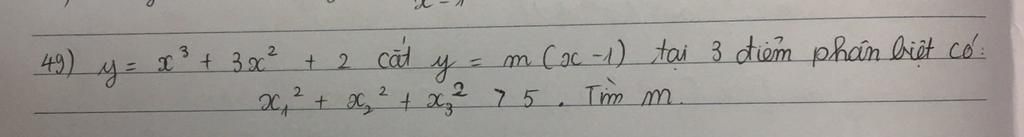 49) y = x³ + 3x² + 2 cắt y = m(x-1) tại 3 điểm phân biệt có:
x₁² + x₂² + x₃² > 5. Tìm m.